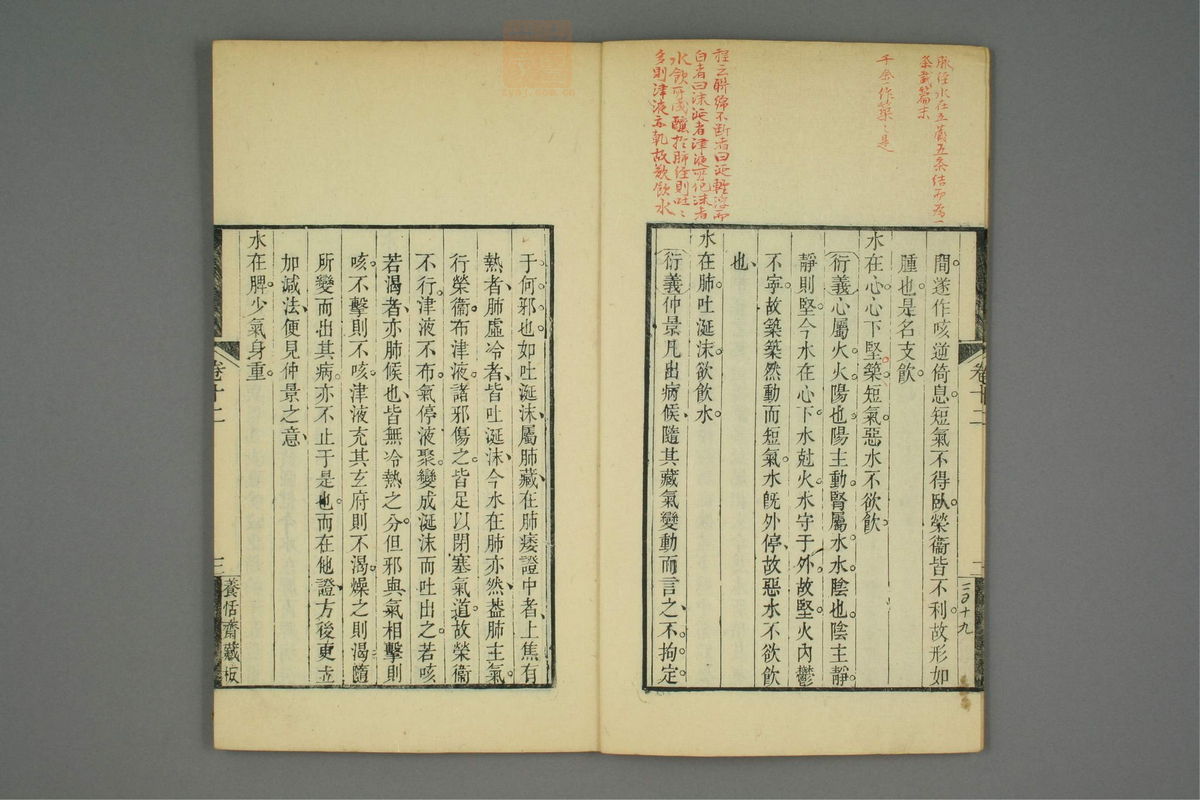 脉經水在五藏五条結而為一
条載篇末
千金作築〻是
程云聯綿不斷者曰涎輕浮而
白者曰沫涎者津液所化沫者
水飲所成釀於肺經則吐〻
多則津液亦乾故欲飲水
間遂作咳逆倚息短氣不得臥榮衞皆不利故形如
腫也是名支飲
水在心心下堅築短氣惡水不欲飲
衍義心屬火火陽也陽主動腎屬水水陰也陰主靜
靜則堅今水在心下水尅火水守于外故堅火內鬱
不寜故築築然動而短氣水旣外停故惡水不欲飲
也
水在肺吐涎沫欲飲水
衍義仲景凡出病候隨其藏氣變動而言之不拘定
卷十二
二
二百十九
于何邪也如吐涎沫屬肺藏在肺痿證中者上焦有
熱者肺虛冷者皆吐涎沫今水在肺亦然葢肺主氣
行榮衞布津液諸邪傷之皆足以閉塞氣道故榮衞
不行津液不布氣停液聚變成涎沫而吐出之若咳
若渴者亦肺候也皆無冷熱之分但邪與氣相擊則
咳不擊則不咳津液充其玄府則不渴燥之則渴隨
所變而出其病亦不止于是也而在他證方後更立
加減法便見仲景之意
水在脾少氣身重
卷十二
三
養恬齋藏板